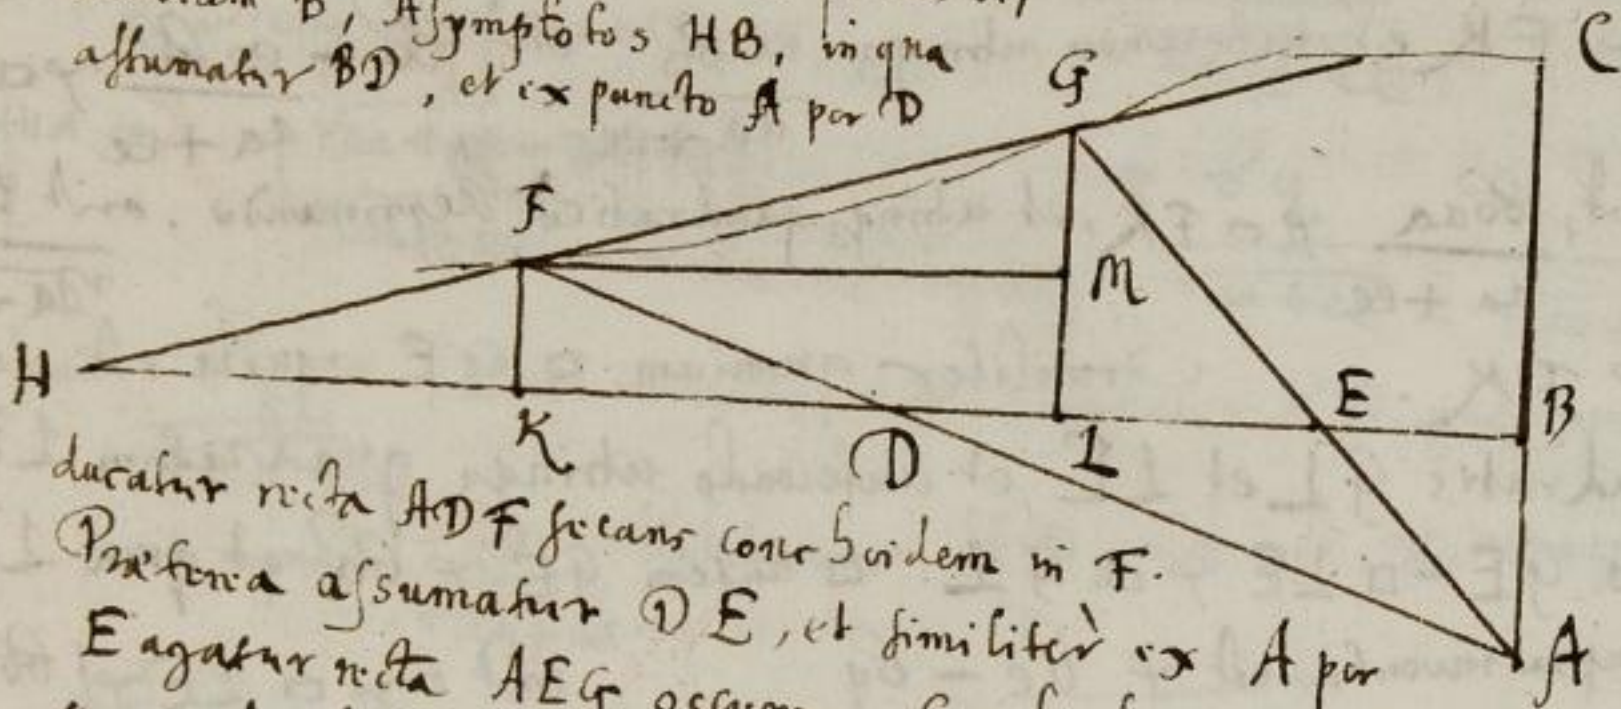 B, Asymptotos HB, in qua
assumatur BD, et ex puncto A per D
C
G
F
M
H
E
B
K
D
L
ducatur recta ADF secans conchoidem in F.
Præterea assumatur DE, et similiter ex A per
A
E agatur recta AEG